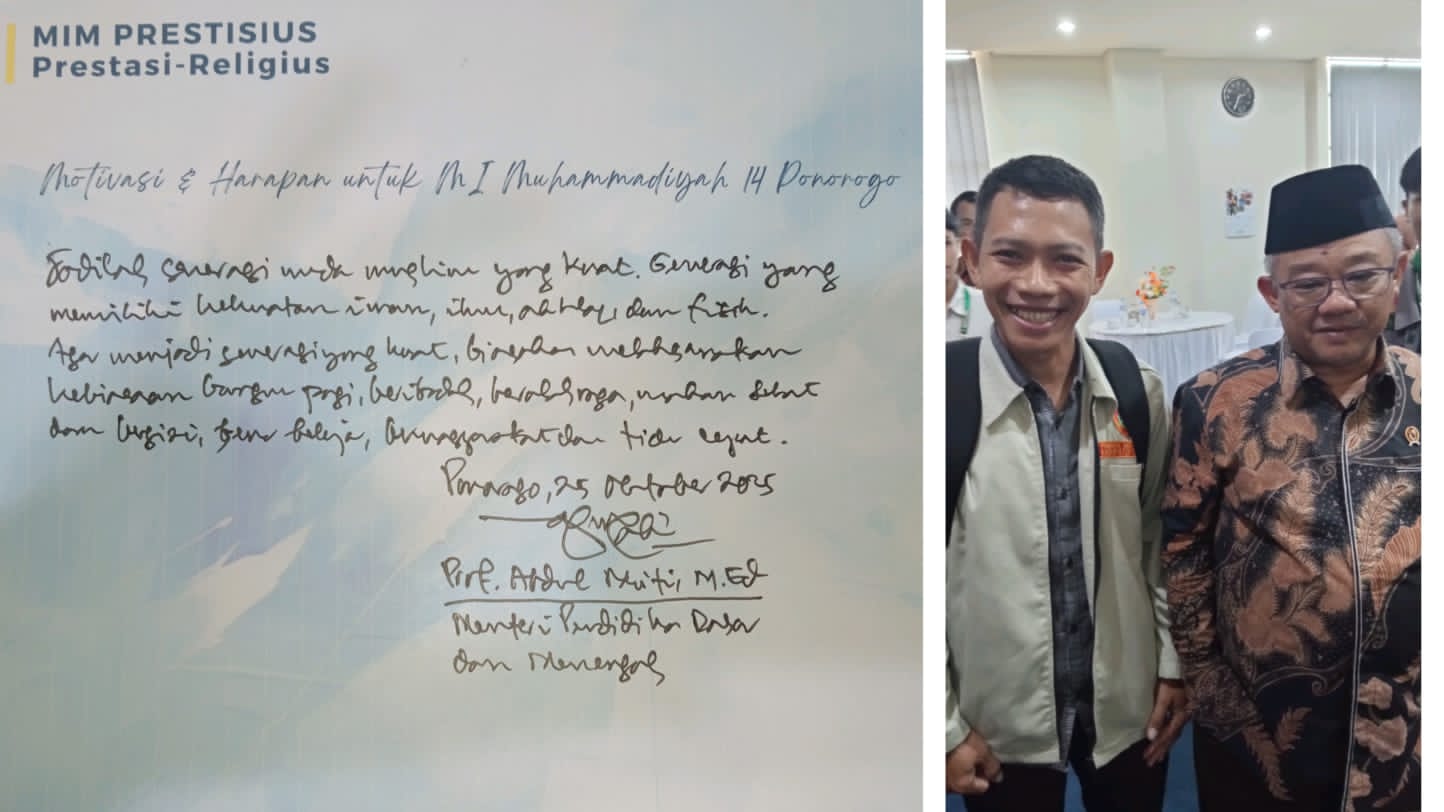 MIM PRESTISIUS
Prestasi-Religius
Motivasi & Harapan untuk MI Muhammadiyah 14 Ponorogo
Jadilah generasi muda muslim yang kuat. Generasi yang
memiliki kekuatan iman, ilmu, akhlaq, dan fisik.
Agar menjadi generasi yang kuat, biasakan melaksanakan
kebiasaan bangun pagi, beribadah, berolahraga, makan sehat
dan bergizi, gemar belajar, bermasyarakat dan tidur cepat.
Ponorogo, 25 Oktober 2025
Prof. Abdul Mu'ti, M.Ed
Menteri Pendidikan Dasar
dan Menengah